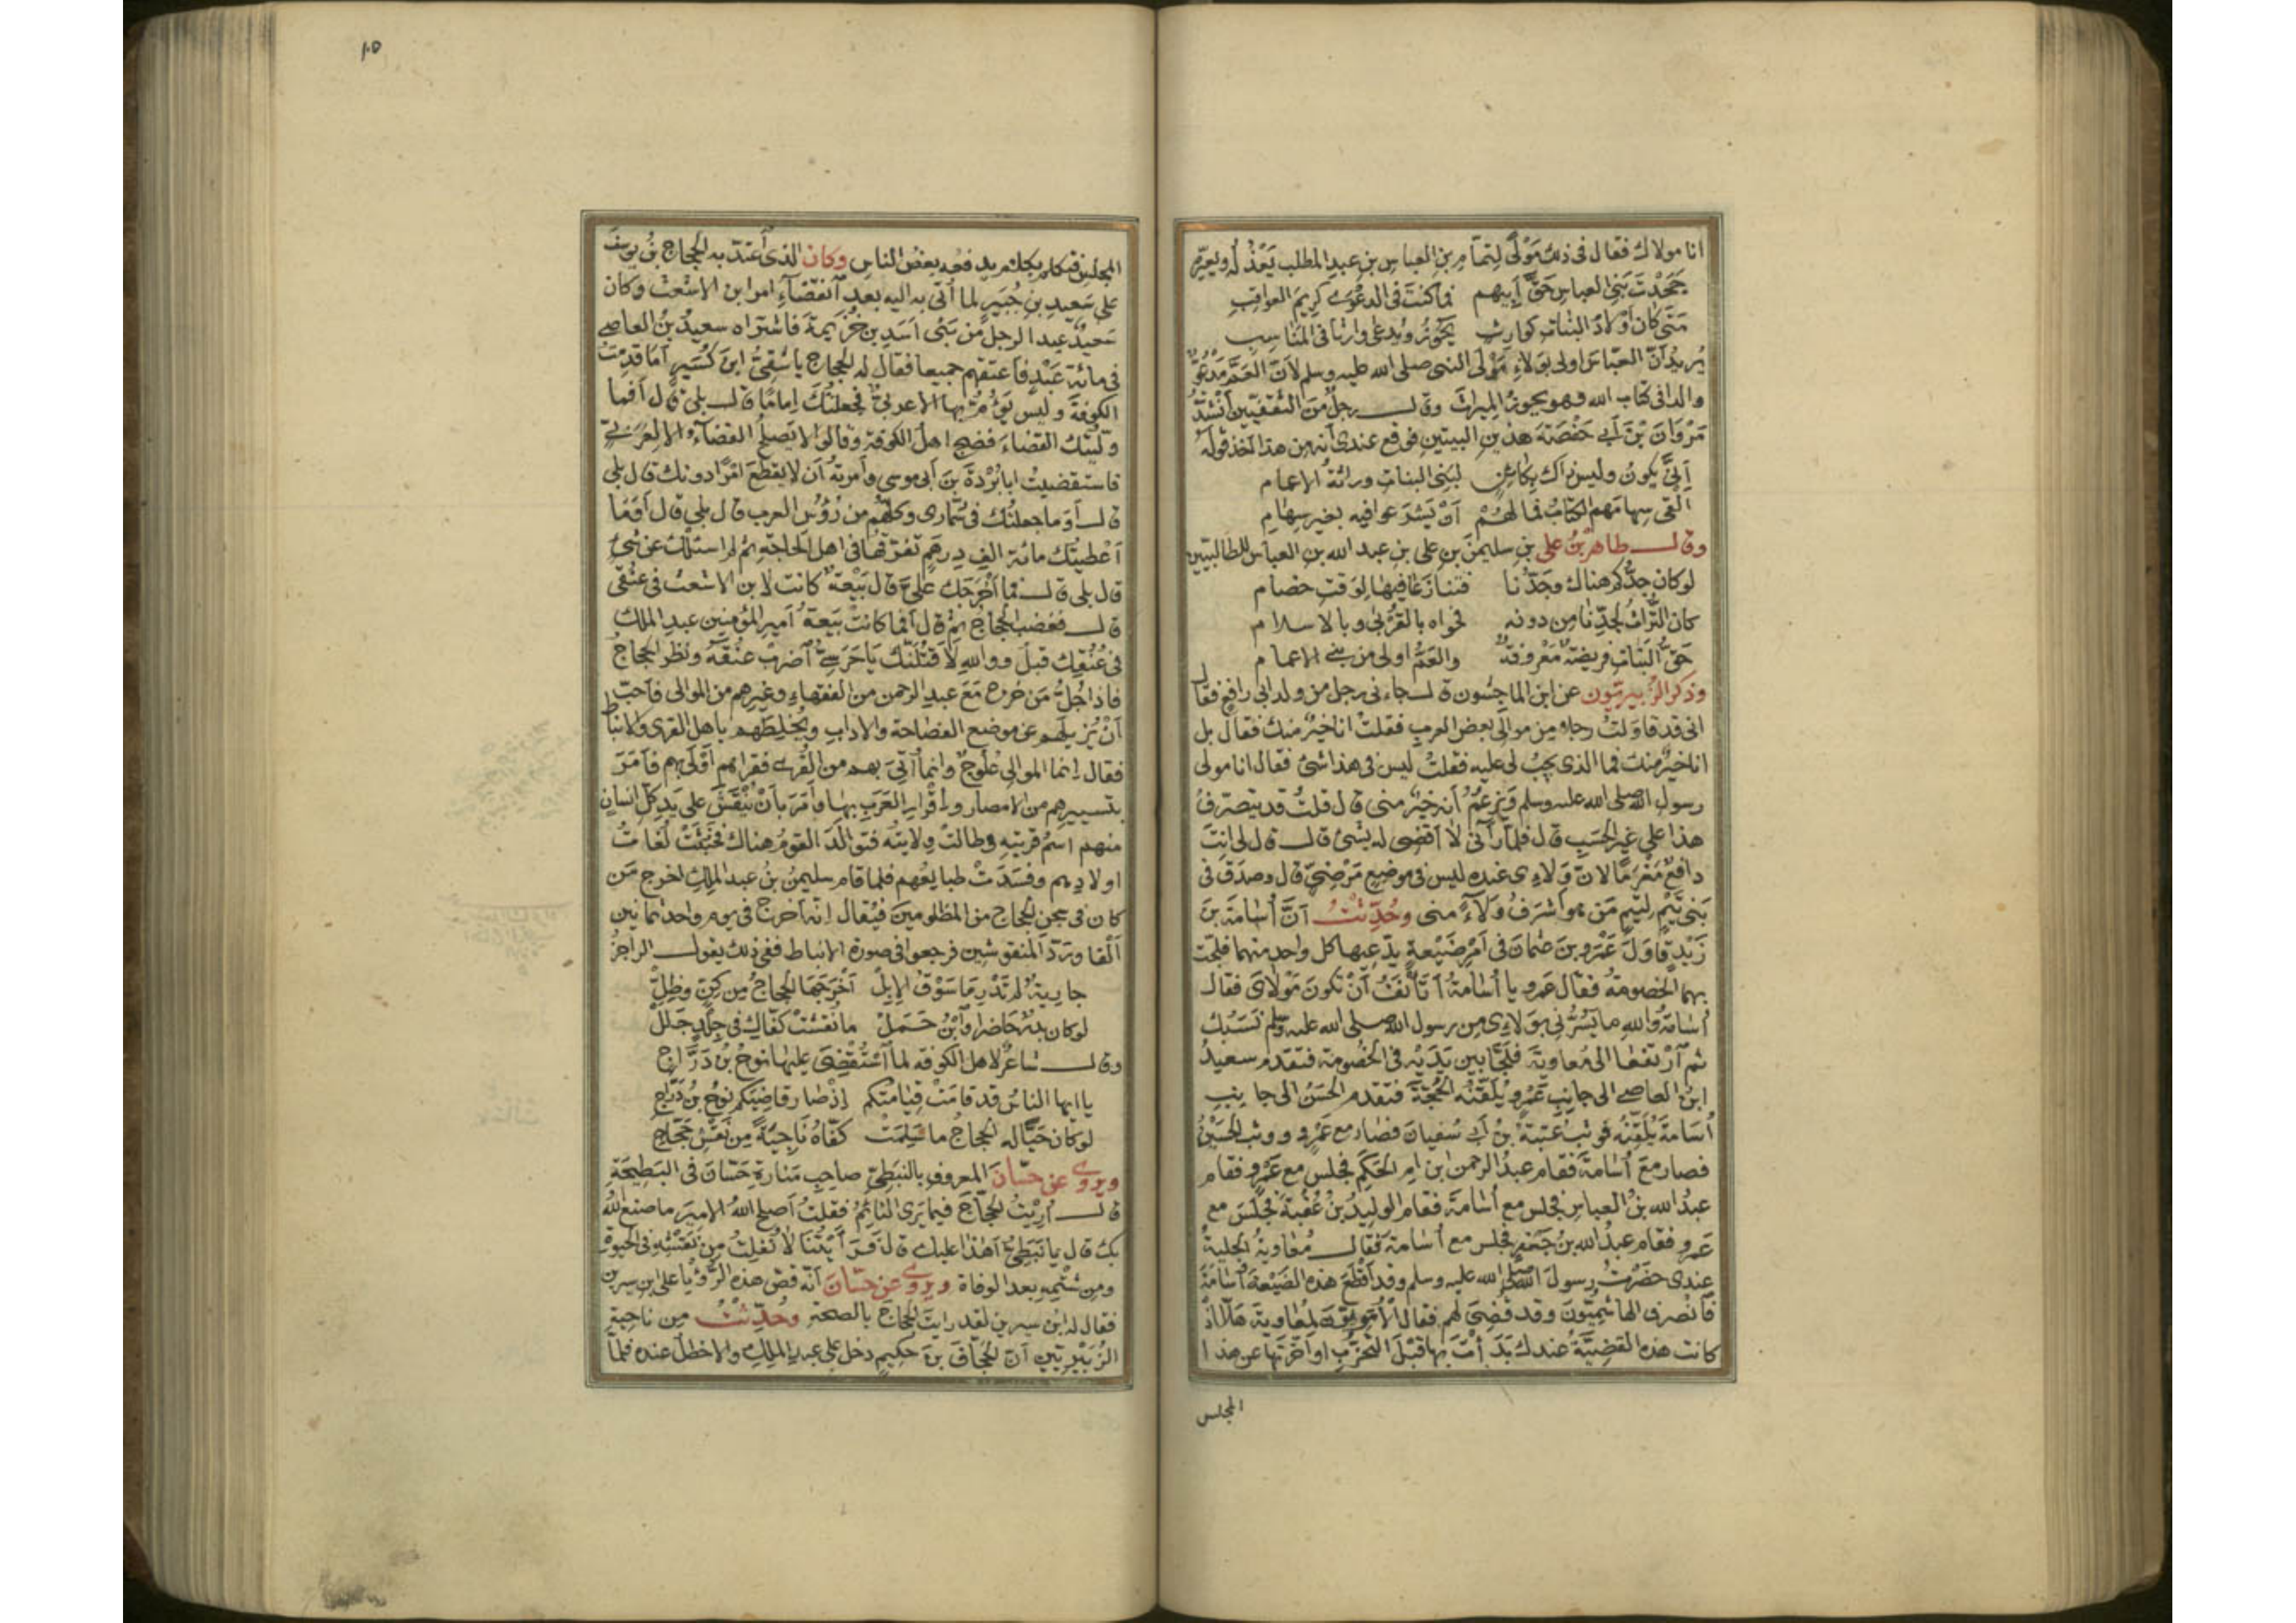 انا مولاك فقال في ذلك مَوْلًى لِتَمّام بنِ العباس بنِ عبدِ المطلب يَعْذُلُه ويعيّره
جَحَدْتَ بَنِي العباسِ حَقَّ أَبِيهم فما كنتَ في الدعْوَى كريمَ العواقبِ
مَتَى كان أَوْلادُ البناتِ كوارثٍ يَحُوزُ ويُدعَى وارثًا في المَنَاسبِ
يُريدُ أنّ العبّاسَ اولى بوَلاءِ مَوْلَى النبي صلى الله عليه وسلم لأنّ العَمَّ مَدْعُوٌّ
والدا في كتاب الله وهو يحوز المِيراثَ وقال رجلٌ من الثقفيّين أُنْشِدَ
مَرْوَانَ بْنَ أبي حَفْصَةَ هذين البيتين فوقع عندي أنه من هذا اخذ قولَه
أَنَّى يكونُ وليس ذاك بكائنٍ لبَنِي البناتِ وراثةُ الاعمام
أَلْقَى سِهامَهم الكتابُ فما لهُمْ أَنْ يَشْرَعوا فيه بغير سِهامِ
وقال طاهرُ بْنُ علي بنِ سليمنَ بنِ علي بنِ عبد الله بن العباس للطالبيّين
لو كان جدُّكم هناك وجَدُّنا فتنازَعَا فيها لوَقتِ خصام
كان التُّراثُ لجَدِّنَا مِن دونه فحواه بالقُرْبَى وبالاسلام
حَقُّ البَناتِ فريضَةٌ مَعْروفةٌ والعَمُّ اولى من بني الاعمام
وذكر الزُّبيريّون عن ابن الماجِشُون قال جاءني رجل من ولد ابي رافع فقال
اني قد قاوَلتُ رجلا من موالي بعض العرب فقلتُ انا خيرٌ منك فقال بل
انا خيرٌ منك فما الذي يجبُ لي عليه فقلتُ ليس في هذا شئ فقال انا مولى
رسول الله صلى الله عليه وسلم وَيزعُمُ أنه خيرٌ مني قال قلتُ قد يتصرّفُ
هذا على غيرِ الحَسَبِ قال فلمّا رآني لا أقضي له بشئ قال قال لي انتَ
دافعٌ مَغْرَمًا لانّ وَلاءِى عنده ليس في موضعٍ مَرْضِيٍّ قال وصدَق في
بني تَيْمٍ لتيمٍ مَن هو أشرَفُ وَلاءً مني وحُدِّثْتُ أنَّ أُسَامَةَ بنَ
زَيْدٍ قاوَلَ عَمْرَو بنَ عثمانَ في أَمْرِ ضَيْعةٍ يدّعيها كل واحد منهما فلجّت
بهما الخصومةُ فقال عمرو يا أُسَامَةُ أَتَأْنَفُ أَنْ تكونَ مَوْلاىَ فقال
أُسَامَةُ والله ما يَسُرُّني بوَلاءِى مِن رسول الله صلى الله عليه وسلم نَسَبُك
ثم ارْتفعَا الى مُعاويةَ فلجَّا بين يَدَيْهِ في الخُصُومة فتقدّم سعيدُ
ابنُ العاصِي الى جانبِ عَمْرٍو يُلَقِّنُه الحُجَّةَ فتقدم الحَسَنُ الى جانِبِ
أُسَامَةَ يُلَقِّنُه فوثب عُتْبَةُ بْنُ أبي سُفيانَ فصار مع عَمْرٍو ووثب الحُسَيْنُ
فصار مَعَ أُسَامَةَ فقام عبدُ الرحمن ابن ام الحَكَم فجلس مع عَمْرٍو فقام
عبدُ الله بنُ العباسِ فجلس مع أُسَامَةَ فقام الوليدُ بْنُ عُقْبَةَ فجَلَسَ مع
عَمرو فقام عبدُ الله بنُ جَعْفَرٍ فجلس مع أُسَامَةَ فقال مُعَاويةُ الجليةُ
عندي حَضَرْتُ رسولَ الله صلى الله عليه وسلم وقد أَقْطَعَ هذه الضَيْعةَ أُسَامَةَ
فَانْصرف الهاشميّونَ وقد قُضِىَ لهم فقال الأُمَوِيّونَ لمُعاويةَ هَلّا اذْ
كانت هذه القضيّةُ عندك بَدَأْتَ بها قَبْلَ التحزُّبِ او أخّرتَها عن هذا
المجلس
١٠٥
المجلس فتكلم بكلام يدفعه بعضُ الناس وكان الذى أعتدّ به الحجاج بنُ يوسفَ
على سَعيد بنِ جُبَيرٍ لما أُتى به اليه بعد انقضاءِ امر ابن الاشعث وكان
سَعيدٌ عبدا لرجل من بَنى اَسَدِ بن خُزَيمةَ فاشتراه سعيدُ بنُ العاصِى
في مائة عَبْدٍ فأعتقهم جميعا فقال له الحجاج يا شَقِىُّ ابنَ كُسَيرٍ أمَا قدِمتَ
الكوفةَ وليس يَؤُمُّ بها الا عربىٌّ فجعلتُكَ إمامًا قال بلى قال أفما
ولّيتُك القضاءَ فضجّ اهلُ الكوفة وقالوا لا يَصلُحُ القضاءُ الا لِعَرَبىٍّ
فاستقضيتُ ابا بُرْدَةَ بنَ أبى موسى وأمرتُه أن لا يقطَعَ امْرًا دونك قال بلى
قال أوَما جعلتُك في سُمّارى وكلُّهم من رُؤُسِ العرب قال بلى قال أفَمَا
أَعْطيتُك مائة الفِ درهمٍ تفرّقُها في اهل الحاجة ثم لم اسئلك عن شىءٍ
قال بلى قال فما أخْرَجَك علىَّ قال بَيْعةٌ كانت لابن الاشعث في عنُقى
قال فغضب الحجّاجُ ثم قال أفما كانتْ بَيعةُ أميرِ المؤمنين عبدِ الملك
في عُنُقِك قبلُ ووالله لأَقتُلنّك يَا حَرَسِىُّ اضرِبْ عنُقَهُ ونظر الحجاجُ
فاذا جُلُّ مَن خرج مَعَ عبد الرحمن من الفقهاءِ وغيرِهم من الموالى فأحبّ
أنْ يُزيلَهم عن موضع الفصاحة والاداب ويُخلِطَهم باهل القرى والانباط
فقال انما الموالى عُلوجٌ وانما أُتِىَ بهم من القُرَى فقراهم أوْلَى بهم فأمَرَ
بتسييرهم من الامصار وإقْرارِ العَرَبِ بها وأمَرَ بأنْ يُنْقَشَ على يَدِ كلّ انسانٍ
منهم اسمُ قريتِه وطالتْ وِلايتُه فتوالَدَ القومُ هناك فخَبُثَتْ لُغاتُ
اولادِهم وفسَدَتْ طبايعُهم فلما قام سليمنُ بنُ عبد الملك اخرج مَن
كان في سجن الحجاج من المظلومين فيُقال إنّه أخرج في يوم واحد ثمانين
ألْفا وردَّ المنقوشين فرجعوا في صورة الانباط ففي ذلك يقول الراجزُ
جاريةٌ لم تَدْرِ مَا سَوْقُ الإبِلْ أَخْرَجَهَا الحجّاجُ مِن كِنٍّ وظِلّْ
لو كان بدرٌ حَاضرا وابْنُ حَمَلْ ما نُقِشَتْ كفّاكِ في جلدٍ جَلَلْ
وقال شاعرٌ لاهل الكوفة لما استُقْضِىَ عليها نوحُ بنُ دَرَّاج
يا ايها الناسُ قد قامَتْ قِيامتُكم إذْ صَار قاضِيَكم نوحُ بنُ دَرّاجِ
لو كان حَيًّا له الحجاجُ ما سَلِمَتْ كفّاهُ نَاجِيةً مِن نَقشِ حَجّاجِ
ويروى عن حَسّانَ المعروف بالنبَطىّ صاحبِ مَنارةِ حَسّانَ في البَطيحَةِ
قال أُرِيتُ الحجّاجَ فيما يَرى النائمُ فقلتُ أصلح اللهُ الاميرَ ما صنع اللهُ
بك قال يا نَبَطِىُّ أهذا عليك قال فرَأَيْتُنَا لا نُفلِتُ مِن نَقشِه في الحيوة
ومِن شَتمِهِ بعد الوفاة ويروى عن حَسّان أنّه قصّ هذه الرُّؤيا على ابن سيرين
فقال له ابن سيرين لقد رايت الحجاجَ بالصحّة وحُدِّثْتُ مِن ناحية
الزُّبَيْريّين أنّ الجَحّافَ بنَ حكيم دخل على عبد الملك والاخطلُ عنده فلمّا